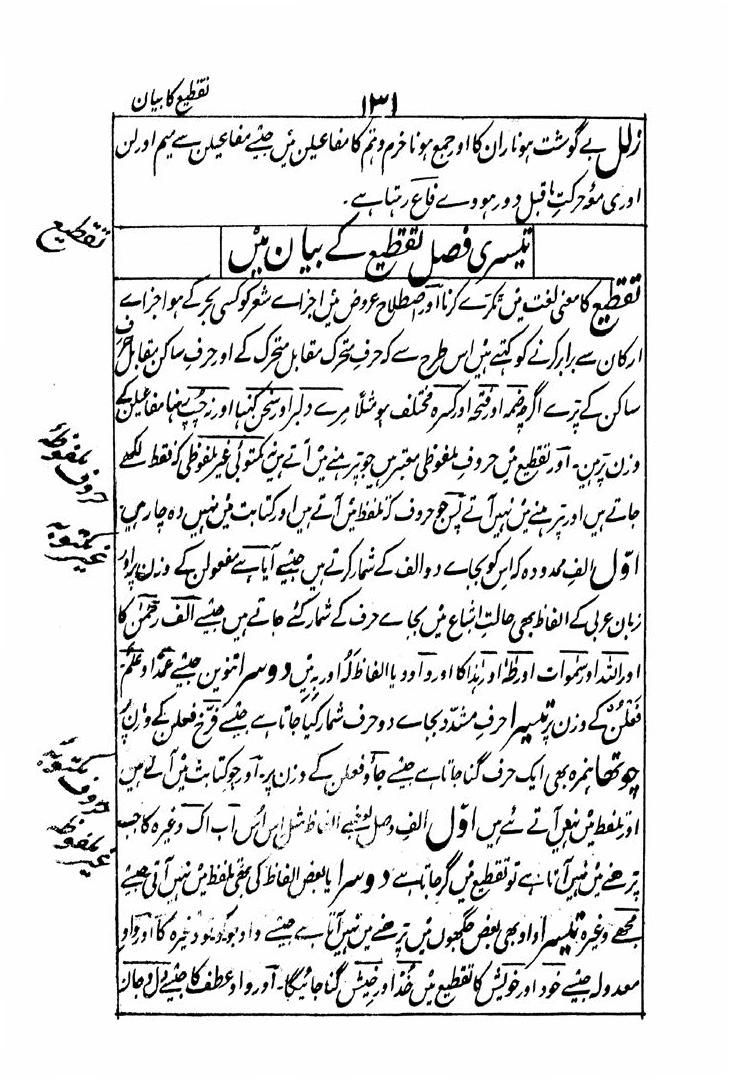 تقطیع کا بیان
١٣١
زلل بے گوشت ہونا ران کا اور جمع ہونا خرم و ہتم کا مفاعیلن میں جیسے مفاعیلن سے میم اور لن
اور ی معہ حرکتِ ماقبل دور ہووے فاع رہتا ہے۔
تقطیع
تیسری فصل تقطیع کے بیان میں
تقطیع کا معنی لغت میں ٹکڑے کرنا اور اصطلاح عروض میں اجزاے شعر کو کسی بحر کے ہو اجزاے
ارکان سے برابر کرنے کو کہتے ہیں اس طرح سے کہ حرفِ متحرک مقابل متحرک کے اور حرفِ ساکن مقابل حرف
ساکن کے پڑے اگرچہ ضمہ اور فتحہ اور کسرہ مختلف ہو مثلاً مرے دلبر او سخن کہنا اور نہ چپ رہنا مفاعیلن کے
وزن پر ہیں۔ اور تقطیع میں حروفِ ملفوظی معتبر ہیں جو پڑھنے میں آتے ہیں نہ مکتوبی غیر ملفوظی کہ فقط لکھے
حروف ملفوظہ
جاتے ہیں اور پڑھنے میں نہیں آتے پس جو حروف کہ تلفظ میں آتے ہیں اور کتابت میں نہیں وہ چار ہیں
غیر مکتوبہ
اوّل الف ممدودہ کہ اس کو بجاے دو الف کے شمار کرتے ہیں جیسے آیا ہے مفعولن کے وزن پر اور
زبان عربی کے الفاظ بھی حالتِ اشباع میں بجاے حرف کے شمار کئے جاتے ہیں جیسے الف رحمٰن کا
اور اللہ اور سمٰوات اور طٰہٰ اور ہٰذا کا اور واو و یا الفاظ لہٗ اور بہٖ میں دوسرا تنوین جیسے عمدًا و علمٌ
فَعْلُنْ کے وزن پر تیسرا حرفِ مشدّد بجاے دو حرف شمار کیا جاتا ہے جیسے فرّخ فعلن کے وزن پر
چوتھا ہمزہ بھی ایک حرف گنا جاتا ہے جیسے جاؤ فعلن کے وزن پر۔ اور جو کتابت میں آتے ہیں
حروف مکتوبہ
اور تلفظ میں نہیں آتے یے ہیں اوّل الفِ وصل بعضے الفاظ مثل اِس اُس اَب اک وغیرہ کا جب
غیر ملفوظہ
پڑھنے میں نہیں آتا ہے تو تقطیع میں گر جاتا ہے دوسرا یا بعض الفاظ کی بھی تلفظ میں نہیں آتی جیسے
مجھے وغیرہ تیسرا واو بھی بعض جگہوں میں پڑھنے میں نہیں آتا ہے جیسے واو ہو کو تو وغیرہ کا اور واو
معدولہ جیسے خود اور خویش کا تقطیع میں خُد اور خیش گنا جائیگا۔ اور واو عطف کا جیسے دل و جان